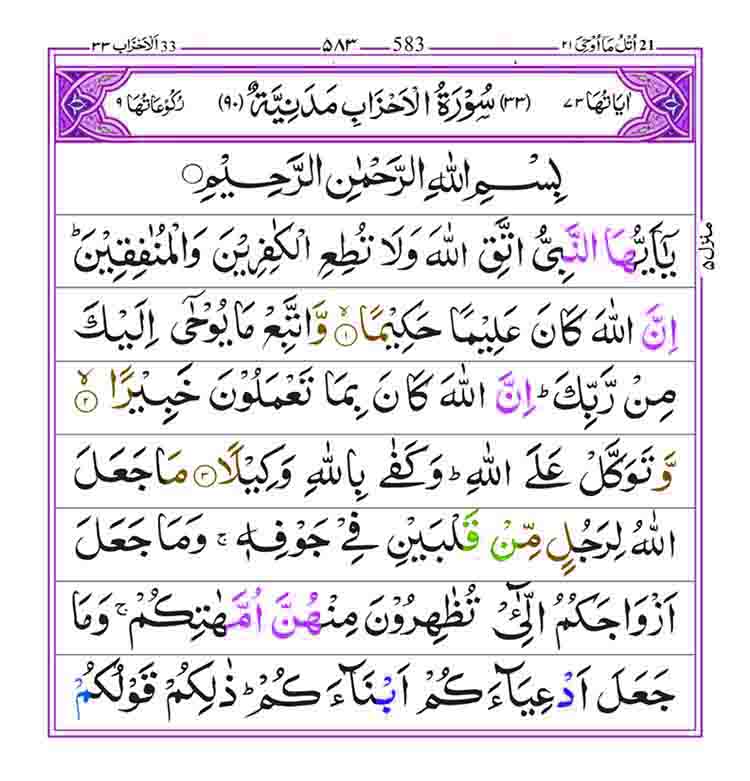 اُتْلُ مَا اُوْحِیَ ٢١ 21 583 ۵۸۳ اَلْاَحْزَاب ٣٣ 33
اٰیَاتُهَا ٧٣ (٣٣) سُوْرَةُ الْاَحْزَابِ مَدَنِیَّةٌ (٩٠) رُكُوْعَاتُهَا ٩
بِسْمِ اللّٰهِ الرَّحْمٰنِ الرَّحِیْمِ○
یٰۤاَیُّهَا النَّبِیُّ اتَّقِ اللّٰهَ وَلَا تُطِعِ الْكٰفِرِیْنَ وَالْمُنٰفِقِیْنَ ؕ
اِنَّ اللّٰهَ كَانَ عَلِیْمًا حَكِیْمًا ۙ﴿١﴾ وَّاتَّبِعْ مَا یُوْحٰۤی اِلَیْكَ
مِنْ رَّبِّكَ ؕ اِنَّ اللّٰهَ كَانَ بِمَا تَعْمَلُوْنَ خَبِیْرًا ۙ﴿٢﴾
وَّتَوَكَّلْ عَلَی اللّٰهِ ؕ وَكَفٰی بِاللّٰهِ وَكِیْلًا ﴿٣﴾ مَا جَعَلَ
اللّٰهُ لِرَجُلٍ مِّنْ قَلْبَیْنِ فِیْ جَوْفِهٖ ۚ وَمَا جَعَلَ
اَزْوَاجَكُمُ الّٰٓـِٔیْ تُظٰهِرُوْنَ مِنْهُنَّ اُمَّهٰتِكُمْ ۚ وَمَا
جَعَلَ اَدْعِیَآءَكُمْ اَبْنَآءَكُمْ ؕ ذٰلِكُمْ قَوْلُكُمْ
منزل ۵